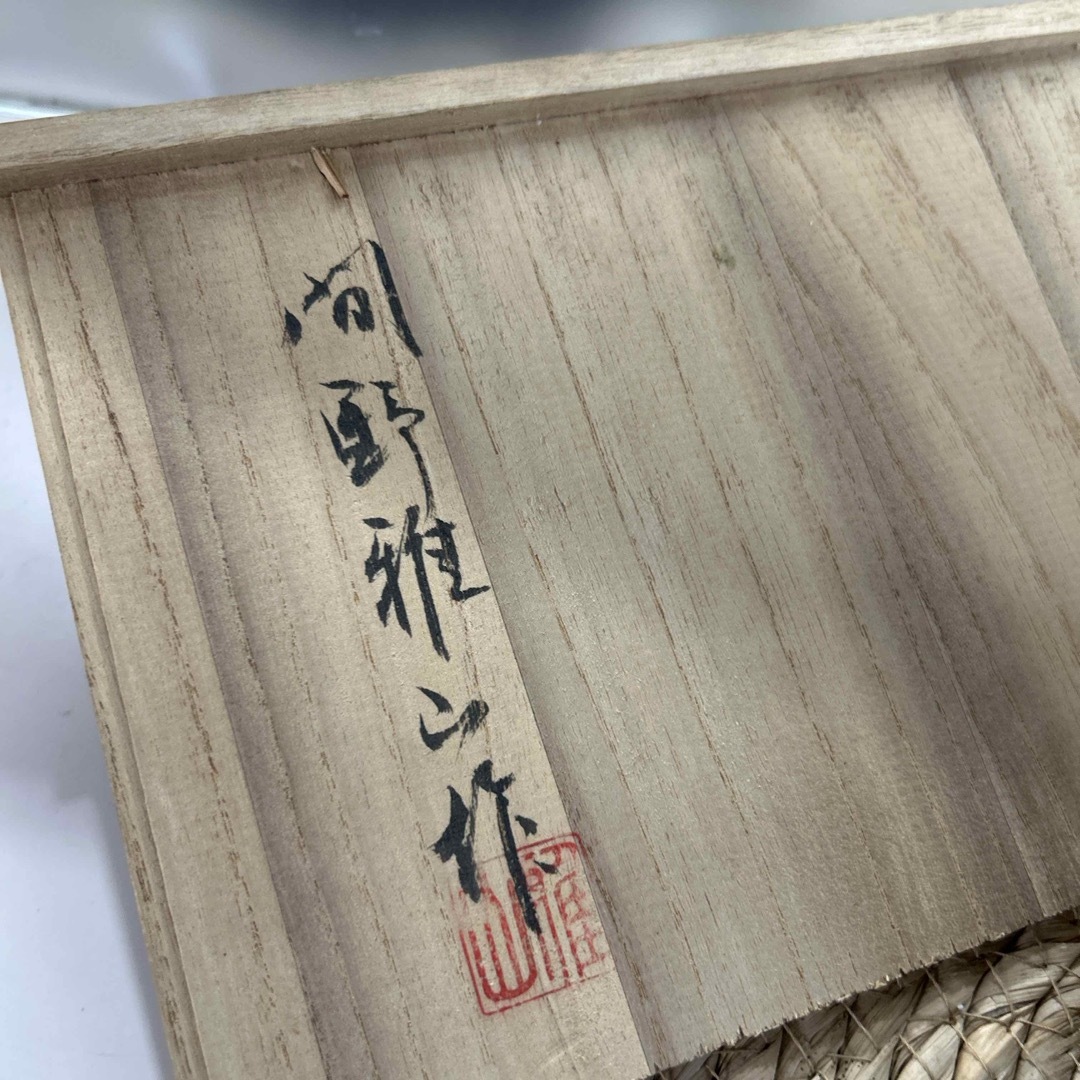 間野雅山作